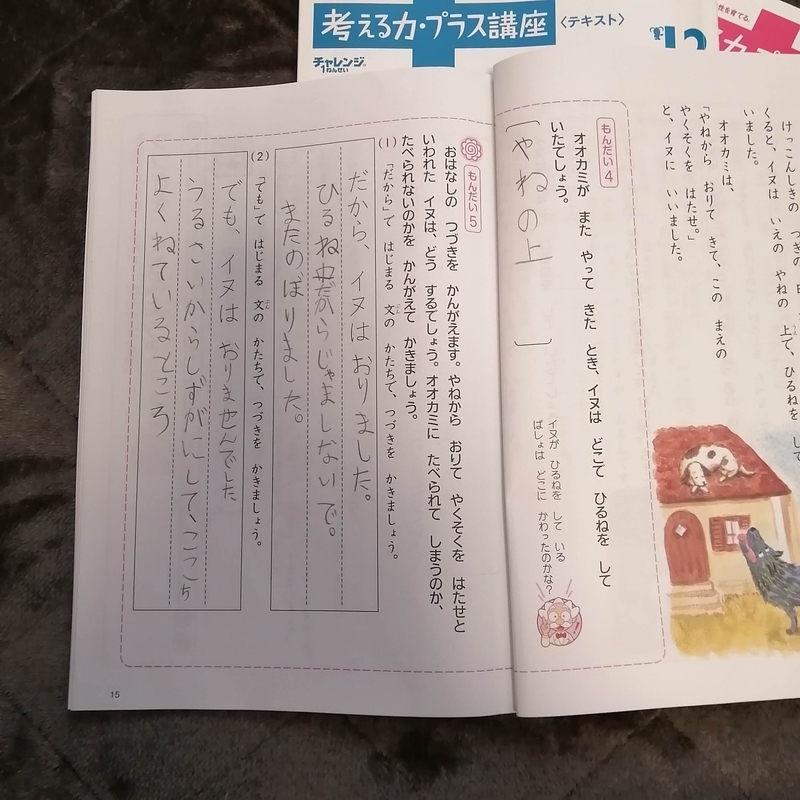 考える力・プラス講座〈テキスト〉
チャレンジ®
1ねんせい
12
性を育てる。
けっこんしきの つぎの
くると、イヌは いえの やねの 上で、ひるねを して
いました。
オオカミは、
「やねから おりて きて、この まえの
やくそくを はたせ。」
と、イヌに いいました。
もんだい4
オオカミが また やって きた とき、イヌは どこで ひるねを して
いたでしょう。
〔やねの上〕
イヌが ひるねを して いる
ばしょは どこに かわったのかな?
もんだい5
おはなしの つづきを かんがえます。やねから おりて やくそくを はたせと
いわれた イヌは、どう するでしょう。オオカミに たべられて しまうのか、
たべられないのかを かんがえて かきましょう。
(1) 「だから」で はじまる 文の かたちで、つづきを かきましょう。
ぶん
だから、イヌはおりました。
ひるね中だからじゃましないで。
またのぼりました。
(2) 「でも」で はじまる 文の かたちで、つづきを かきましょう。
ぶん
でも、イヌはおりませんでした
うるさいからしずがにして、ここち
よくねているところ
15